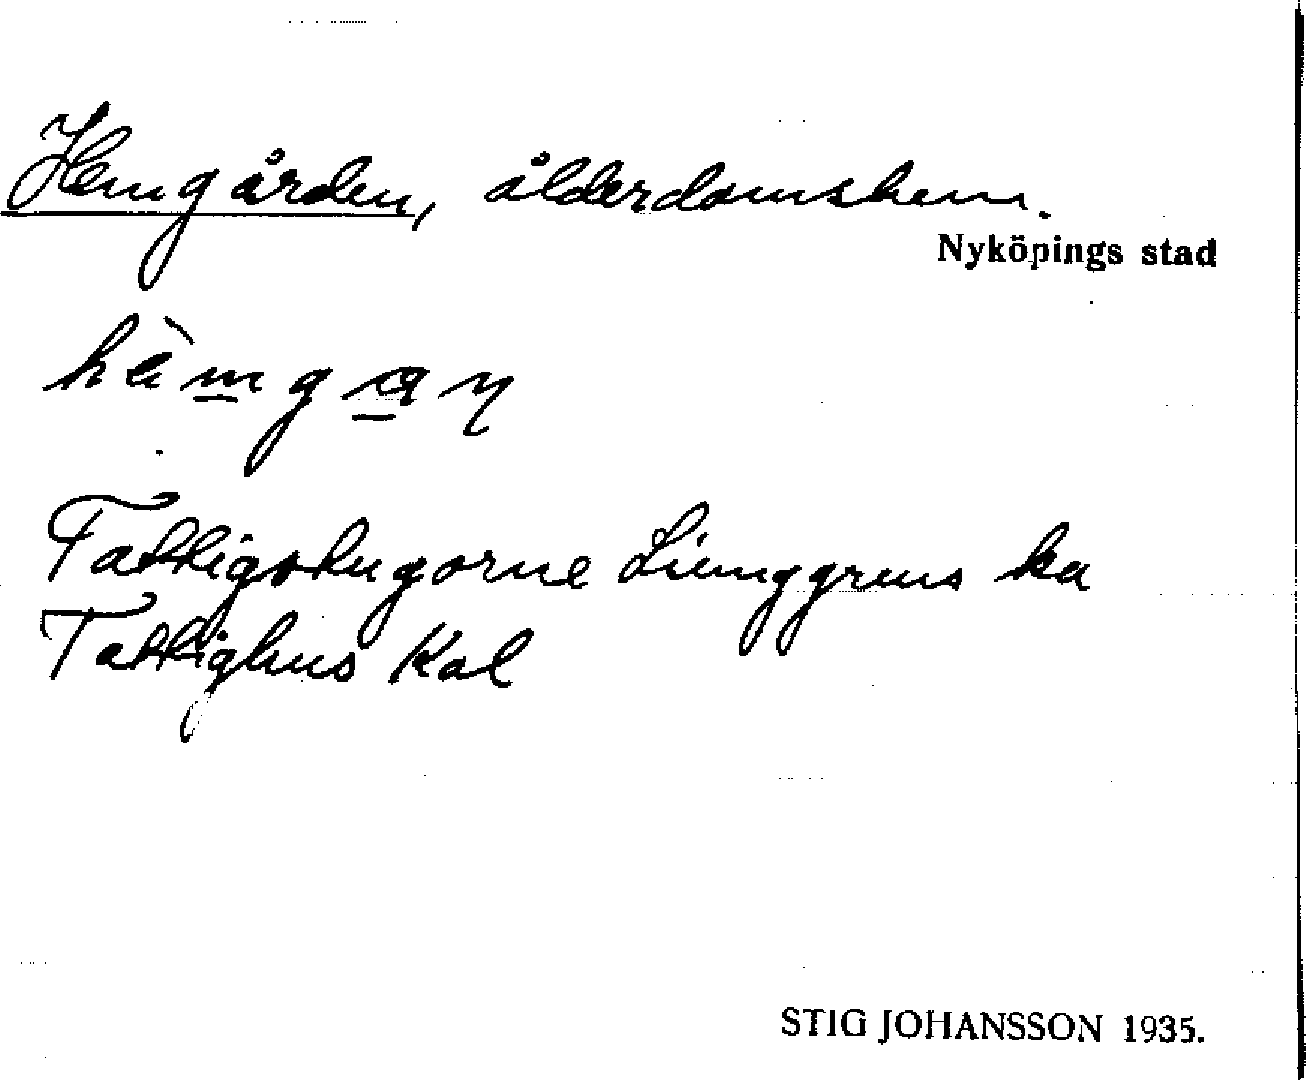 Hemgården, ålderdomshem.
Nyköpings stad
hèmgaɳ
Fattigstugorne Liunggrens ka
Fattighus Kal
STIG JOHANSSON 1935.